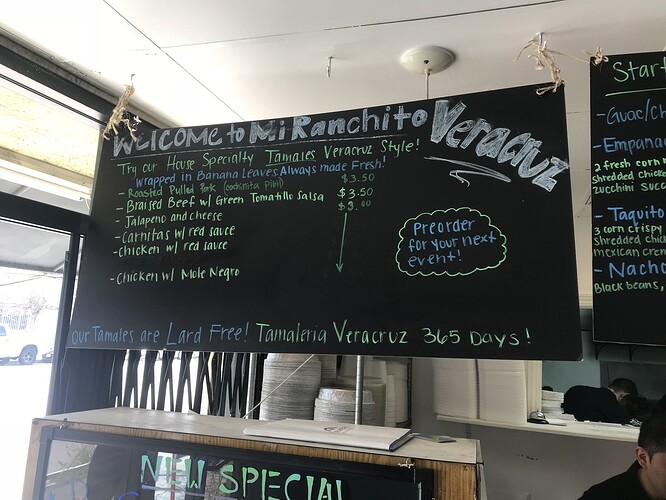 WELCOME to Mi Ranchito Veracruz
Try our House Specialty Tamales Veracruz Style!
wrapped in Banana Leaves Always made Fresh!
- Roasted Pulled Pork (cochinita pibil) $3.50
- Braised Beef w/ Green Tomatillo Salsa $3.50
- Jalapeno and cheese
- Carnitas w/ red sauce
- chicken w/ red sauce
- Chicken w/ Mole Negro
Preorder
for your next
event!
Our Tamales are Lard Free! Tamaleria Veracruz 365 Days!
Start
- Guac/Ch
- Empana
2 fresh corn
shredded chicke
zucchini succ
- Taquito
3 corn crispy
shredded chick
mexican crem
- Nacho
Black beans,
NEW SPECIAL